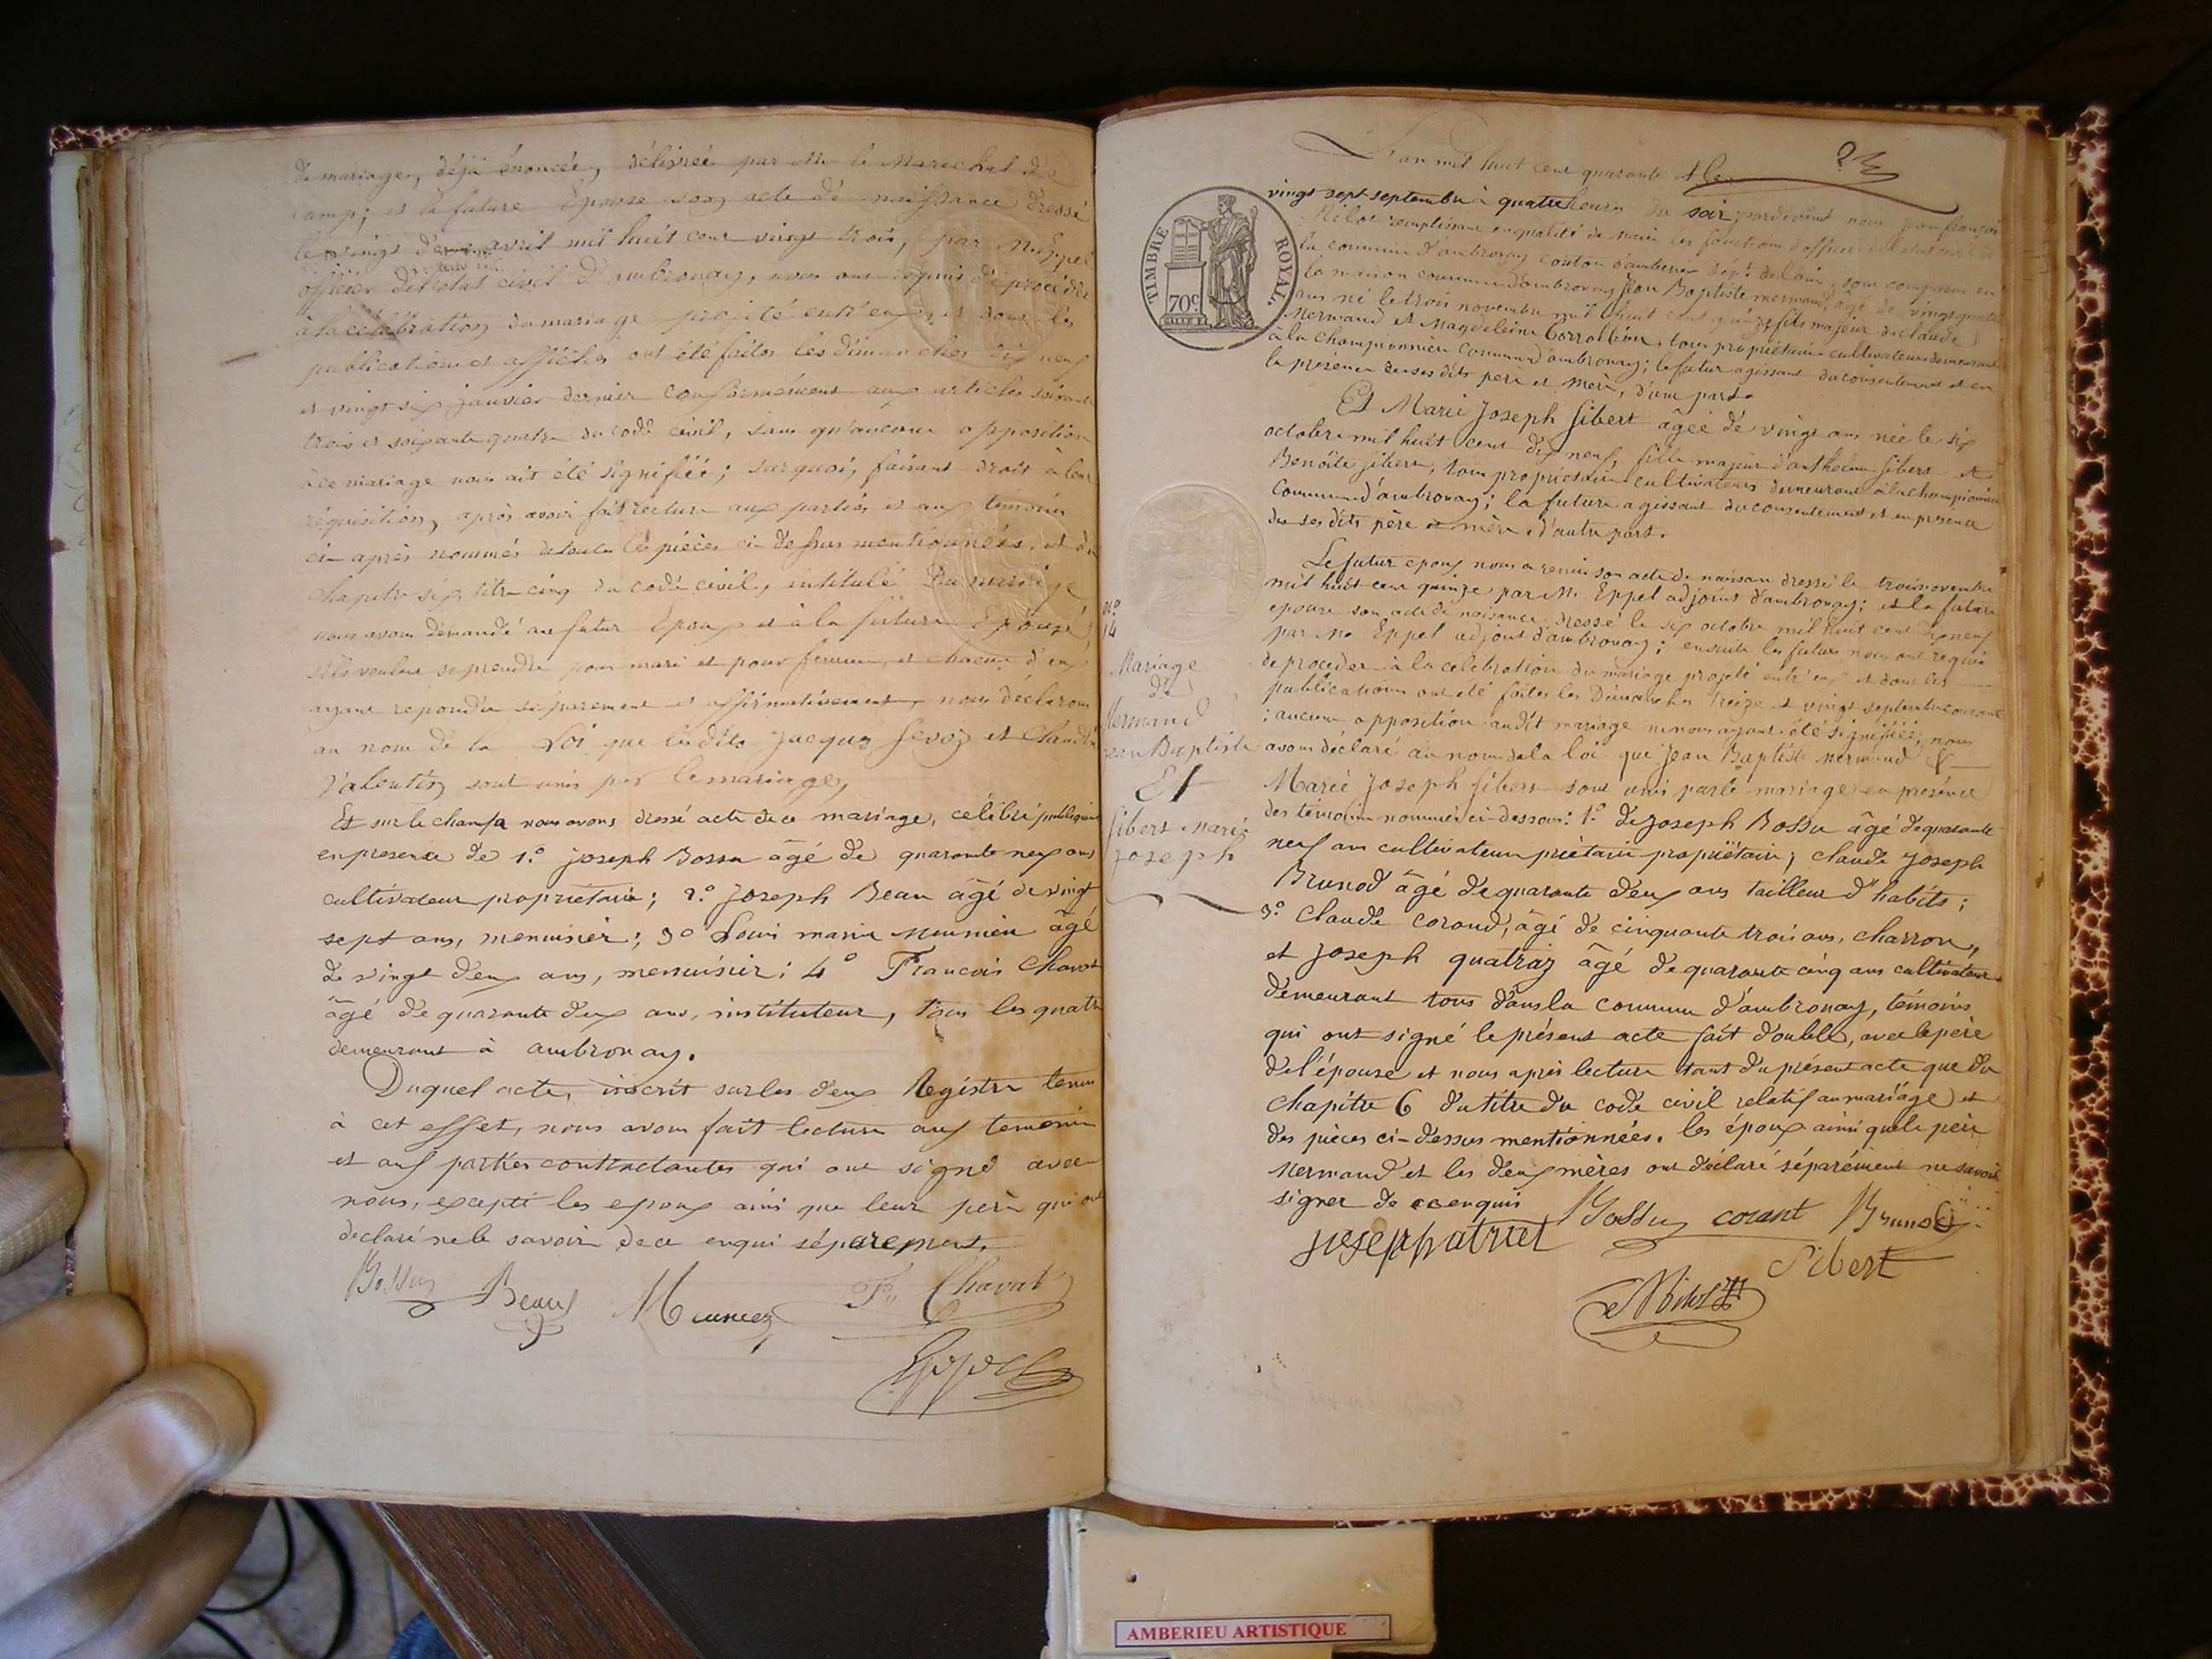 de mariage, déjà énoncée, délivrée par Mr le Marechal de
camp; et la future Epouse son acte de naissance dressé
le vingt deux avril mil huit cent vingt trois, par Mr Eppel
officier de l'etat civil d'ambronay, nous ont requis de procéder
à la célébration du mariage projeté entr'eux, et dont les
publications et affiches ont été faites les dimanches dix neuf
et vingt six janvier dernier conformément aux articles soixante
trois et soixante quatre du code civil, sans qu'aucune opposition
à ce mariage nous ait été signifiée; sur quoi, faisant droit à leur
réquisition, après avoir fait lecture aux parties et aux temoins
ci après nommés de toutes les pièces ci dessus mentionnées, et du
chapitre six, titre cinq du code civil, intitulé Du mariage
nous avons demandé au futur Epoux et à la future Epouse
s'ils veulent se prendre pour mari et pour femme, et chacun d'eux
ayant répondu séparement et affirmativement, nous déclarons
au nom de la Loi que les dits Jacques Sevoz et Claudine
Valentin sont unis par le mariage,
Et sur le champ nous avons dressé acte de ce mariage, célébré publiquement
en presence de 1.° joseph Bossu âgé de quarante neuf ans
cultivateur propriétaire; 2.° Joseph Beau âgé de vingt
sept ans, menuisier; 3° Louis marie Meunier âgé
de vingt deux ans, menuisier; 4° Francois Chavat
âgé de quarante deux ans, instituteur, tous les quatre
demeurant à ambronay.
Duquel acte, inscrit sur les deux Registre tenus
à cet effet, nous avons fait lecture aux temoins
et aux parties contractantes qui ont signé avec
nous, excepté les epoux ainsi que leur père qui ont
declaré ne le savoir de ce enquis séparement.
Bossu Beau Meunier Fs Chavat
Eppel
L'an mil huit cent quarante et le
vingt sept septembre à quatre heures du soir pardevant nous jean françois
Milot remplissant en qualité de maire les fonctions d'officier de l'etat civil de
la commune d'ambronay canton d'amberieu dépt de l'ain, sont comparus en
la maison commune d'ambronay Jean Baptiste mermand, âgé de vingt quatre
ans né le trois novembre mil huit cent quinze fils majeur de claude
Mermand et Magdeleine, tous propriétaires cultivateurs demeurant
à la championnière commune d'ambronay; le futur agissant du consentement et en
la présence de ses dits père et mère, d'une part.
Et Marie Joseph Sibert âgée de vingt ans née le six
octobre mil huit cent dix neuf, fille majeur d'anthelme Sibert et
Benoîte, tous propriétaires cultivateurs demeurant à la championnière
commune d'ambronay; la future agissant du consentement et en presence
de ses dits père et mère, d'autre part.
Le futur epoux nous a remis son acte de naissance dressé le trois novembre
mil huit cent quinze par Mr Eppel adjoint d'ambronay; et la future
epouse son acte de naissance dressé le six octobre mil huit cent dix neuf
par Mr Eppel adjoint d'ambronay; ensuite les futurs nous ont requis
de proceder à la célébration du mariage projeté entr'eux et dont les
publications ont été faites les Dimanches treize et vingt septembre courant
; aucune opposition audit mariage ne nous ayant été signifiée, nous
avons déclaré au nom de la loi que Jean Baptiste mermand &
Marie Joseph Sibert sont unis par le mariage en présence
des témoins nommés ci-dessous: 1.° de Joseph Bossu âgé de quarante
neuf ans cultivateur priétaire propriétaire; claude Joseph
Brunod âgé de quarante deux ans tailleur d'habits;
3.° Claude corand, âgé de cinquante trois ans, charron,
et Joseph quatraz âgé de quarante cinq ans cultivateur
demeurant tous dans la commune d'ambronay, temoins
qui ont signé le présent acte fait double, avec le père
de l'épouse et nous après lecture tant du présent acte que du
chapitre 6 du titre du code civil relatif au mariage et
des pièces ci-dessus mentionnées. les époux ainsi que le père
Mermand et les deux mères ont déclaré séparément ne savoir
signer de ce enquis
Bossu corant Brunod
Sibert
Milot
TIMBRE ROYAL.
70c
N.° 14
Mariage
de
Mermand
Jean Baptiste
Et
Sibert Marie
Joseph
AMBERIEU ARTISTIQUE